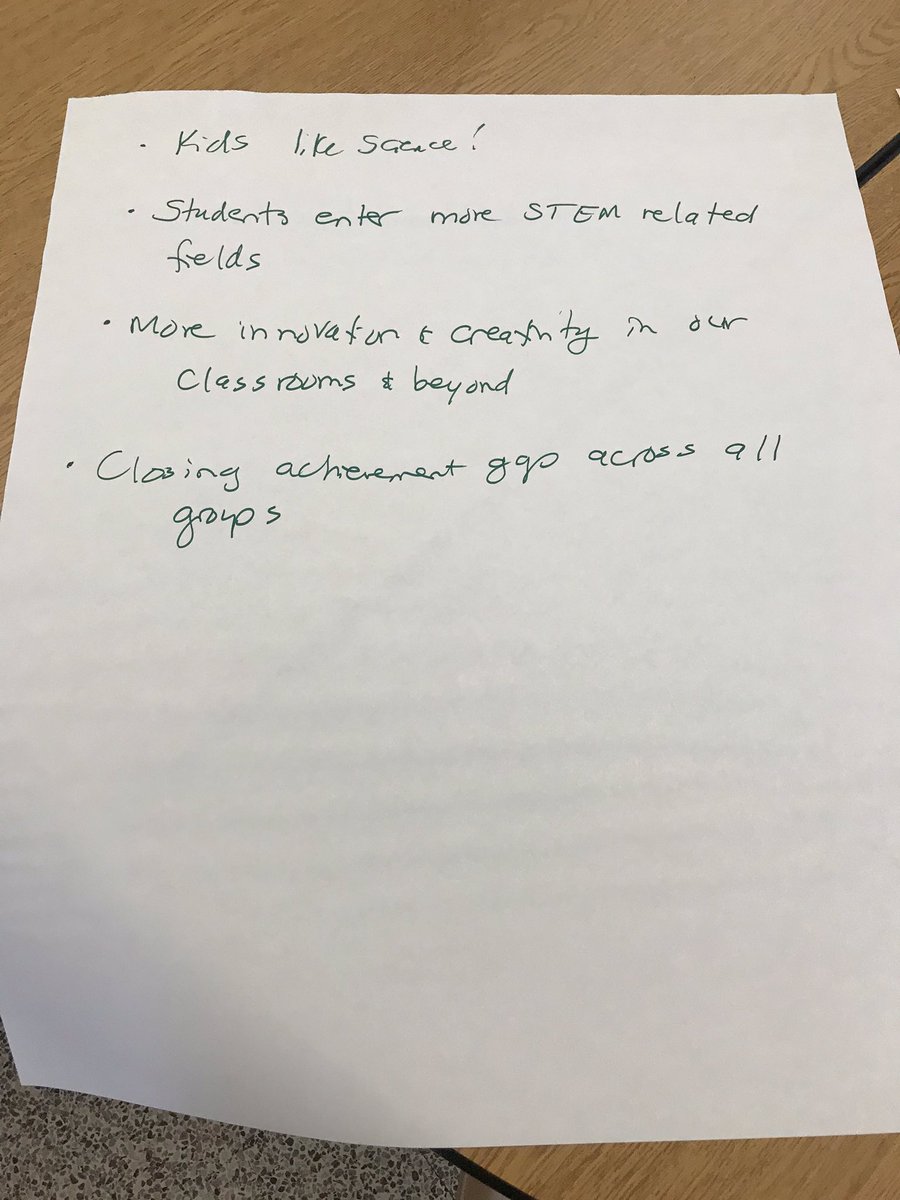 · Kids like science!
· Students enter more STEM related
fields
· More innovation & creativity in our
Classrooms & beyond
· Closing achievement gap across all
groups